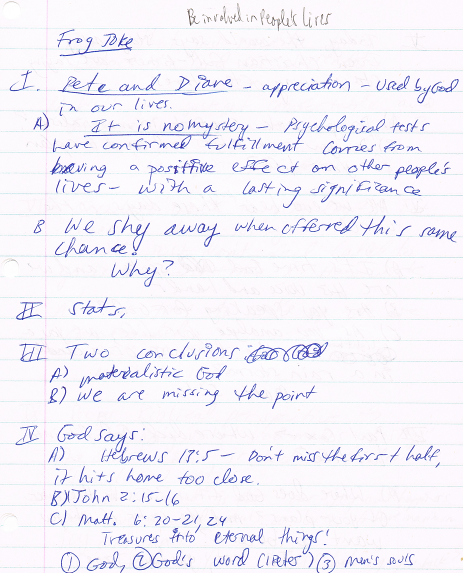 Be involved in People's Lives
Frog Joke
I. Pete and Diane - appreciation - Used by God
in our lives.
A) It is no mystery - Psychological tests
have confirmed fulfillment comes from
having a positive effect on other people's
lives - with a lasting significance
B We shy away when offerred this same
chance!
Why?
II Stats,
III Two conclusions
A) materalistic God
B) We are missing the point
IV God says:
A) Hebrews 13:5 - Don't miss the first half,
it hits home too close.
B) I John 2:15-16
C) Matt. 6:20-21, 24
Treasures into eternal things!
① God, ② God's word (I Peter) ③ Men's souls